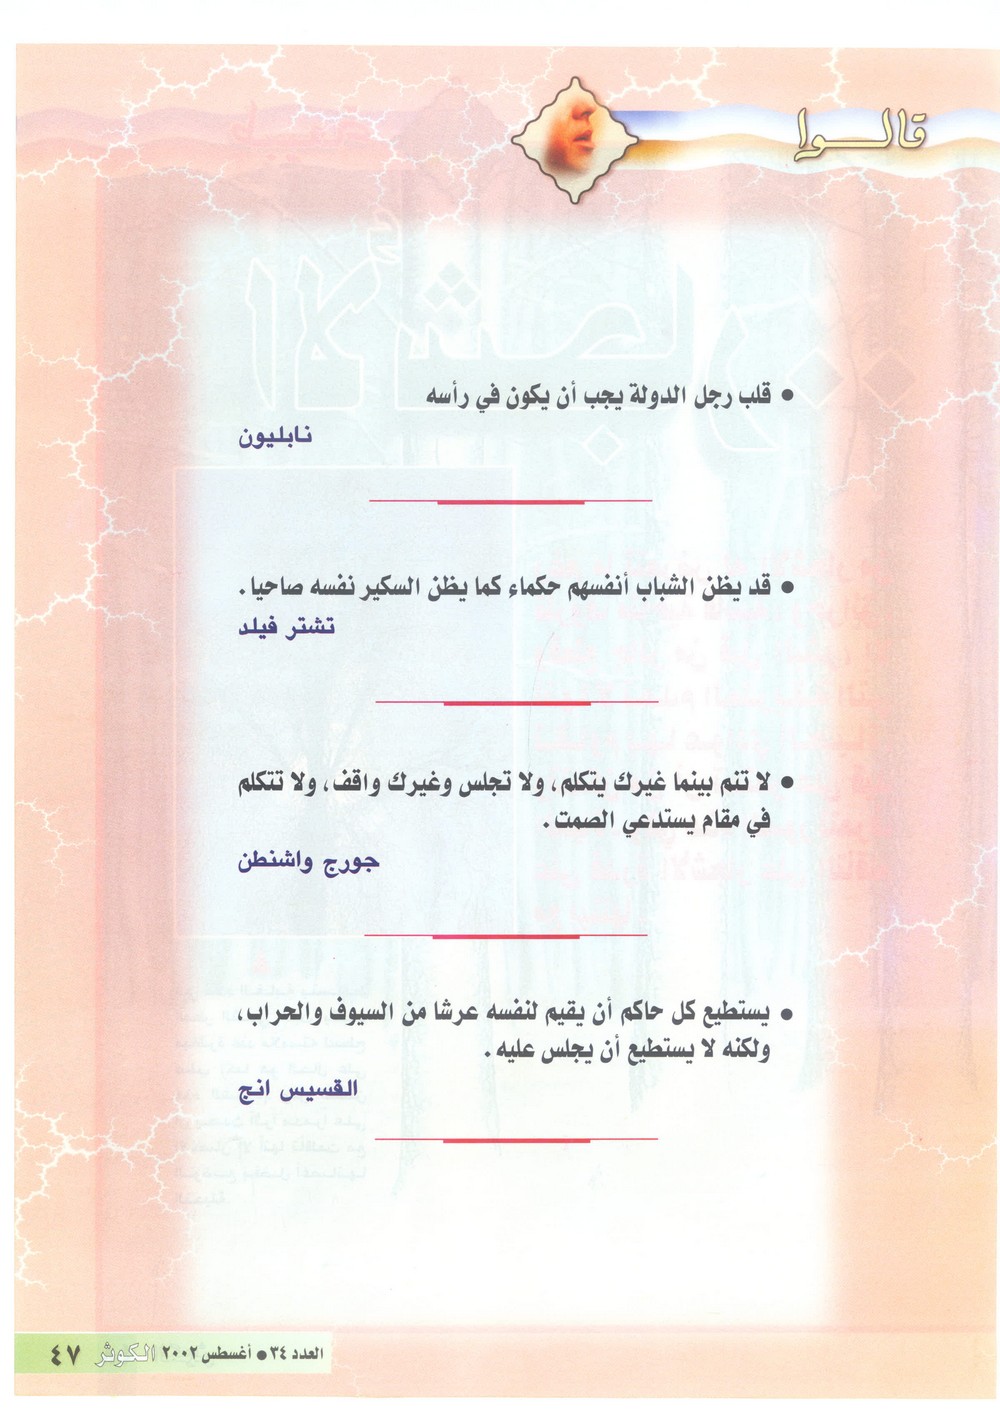 قالوا
• قلب رجل الدولة يجب أن يكون في رأسه
نابليون
• قد يظن الشباب أنفسهم حكماء كما يظن السكير نفسه صاحيا.
تشتر فيلد
• لا تنم بينما غيرك يتكلم، ولا تجلس وغيرك واقف، ولا تتكلم
في مقام يستدعي الصمت.
جورج واشنطن
• يستطيع كل حاكم أن يقيم لنفسه عرشا من السيوف والحراب،
ولكنه لا يستطيع أن يجلس عليه.
القسيس انج
العدد ٣٤ • أغسطس ٢٠٠٢ الكوثر ٤٧